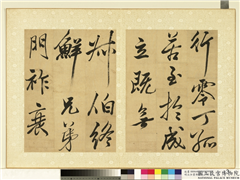 行零丁孤
苦至於成
立既無
叔伯終
鮮兄弟
門祚衰
國立故宮博物院